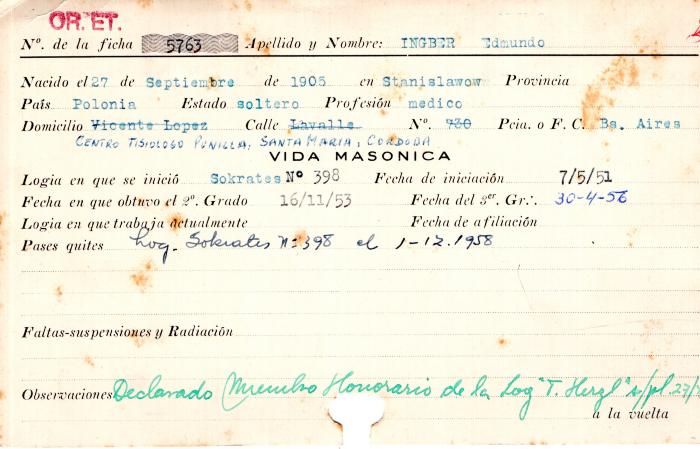 OR.˙.ET.
Nº. de la ficha 5763 Apellido y Nombre: INGBER Edmundo
Nacido el 27 de Septiembre de 1905 en Stanislawow Provincia
País Polonia Estado soltero Profesión medico
Domicilio Vicente Lopez Calle Lavalle Nº. 730 Pcia. o F. C. Bs. Aires
CENTRO TISIOLOGO PUNILLA, SANTA MARIA, CORDOBA
VIDA MASONICA
Logia en que se inició Sokrates Nº 398 Fecha de iniciación 7/5/51
Fecha en que obtuvo el 2º. Grado 16/11/53 Fecha del 3er. Gr.·. 30-4-56
Logia en que trabaja actualmente Fecha de afiliación
Pases quites Log. Sokrates Nº 398 el 1-12.1958
Faltas-suspensiones y Radiación
Observaciones Declarado Miembro Honorario de la Log "T. Herzl" s/pl.
a la vuelta